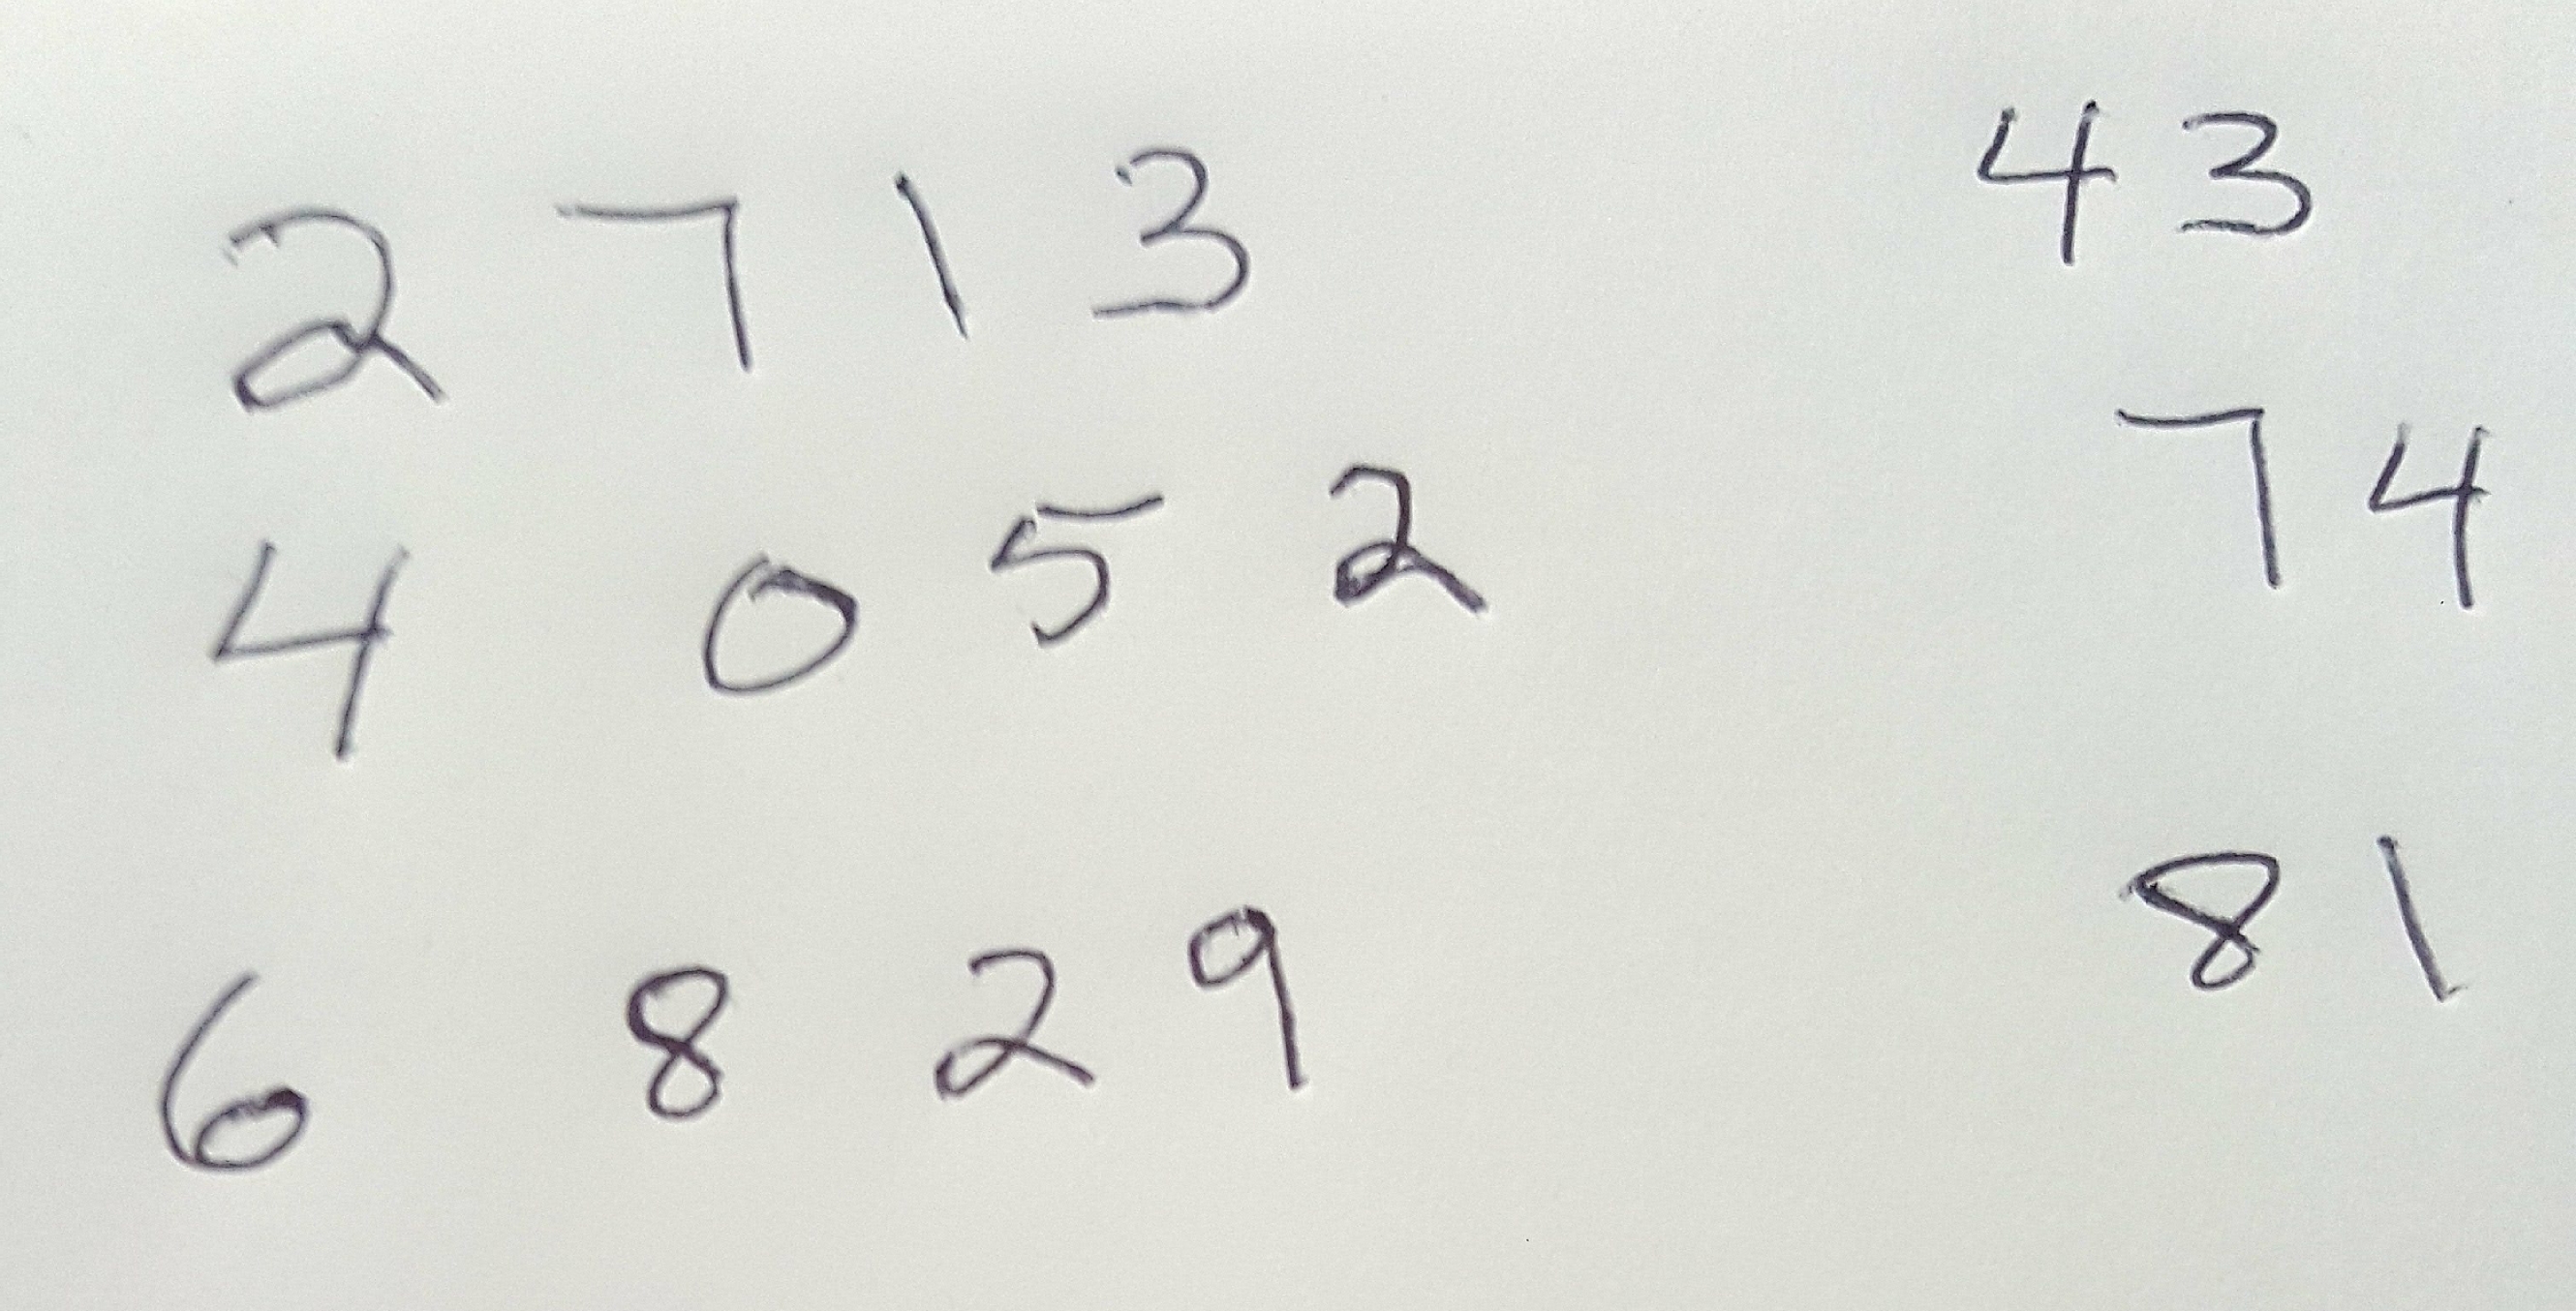 2 7 1 3 43
4 0 5 2 74
6 8 2 9 81